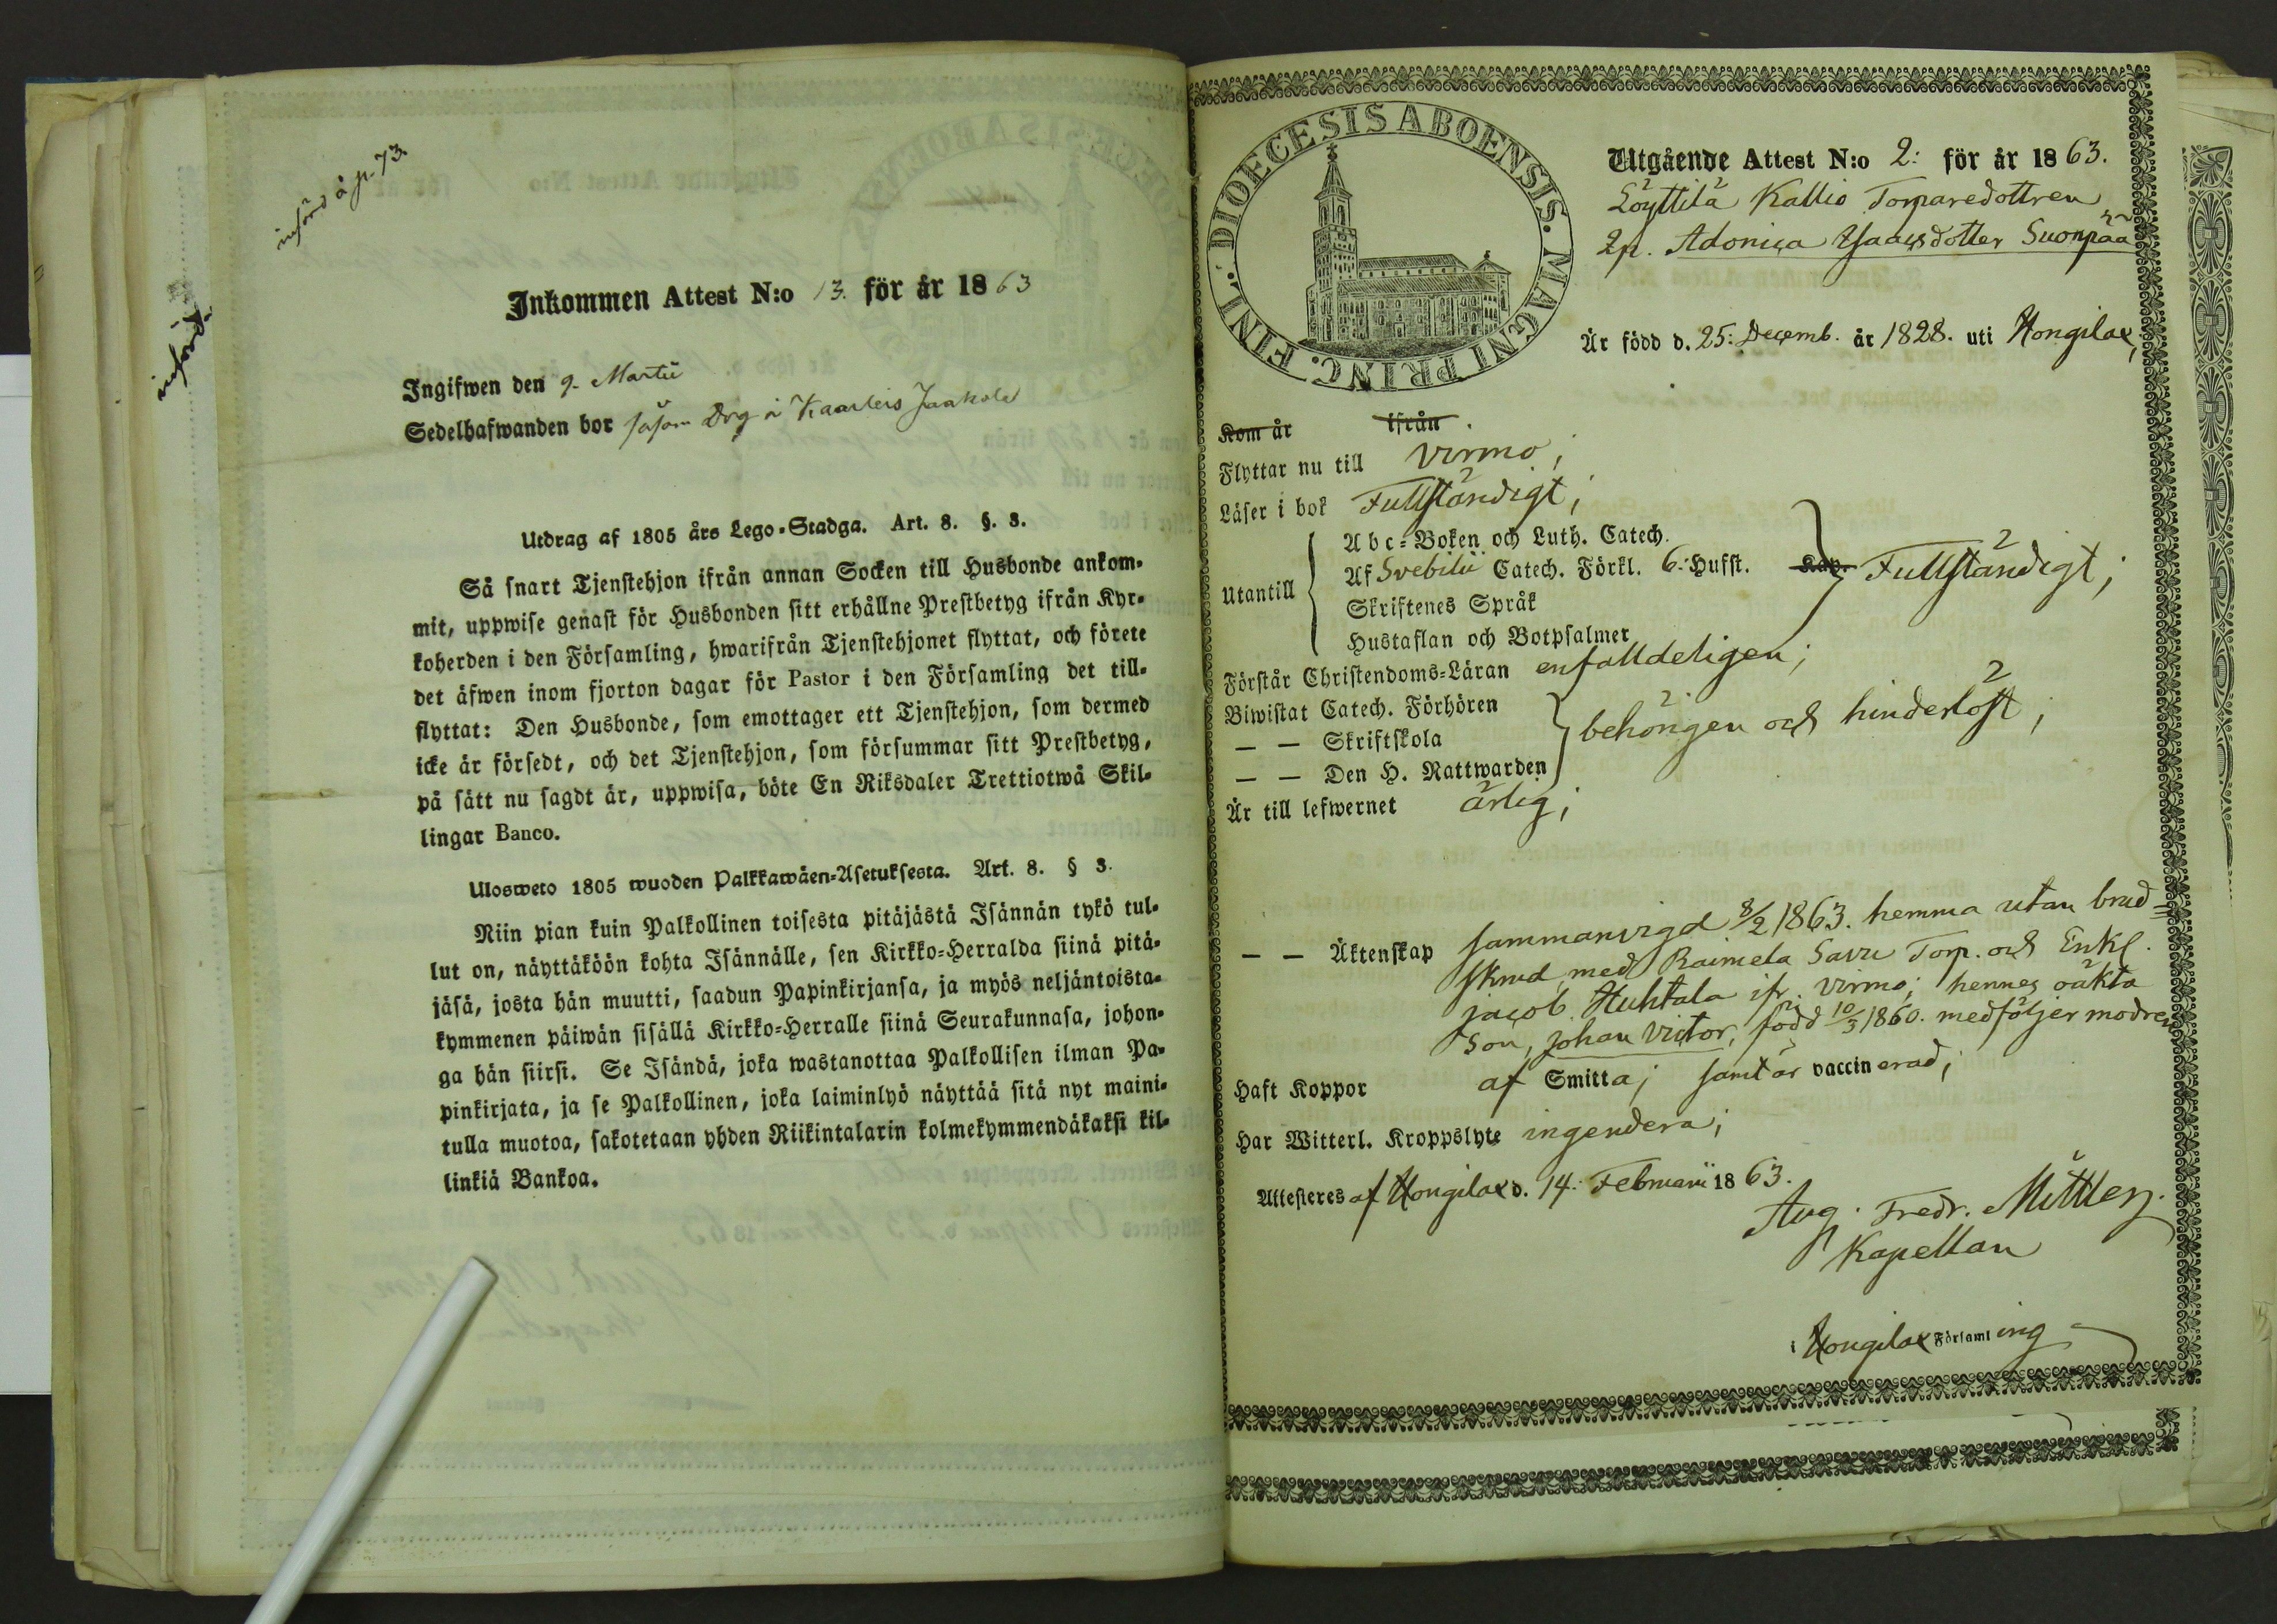 införd å p. 73.
införd.
Inkommen Attest N:o 13. för år 1863
Ingifwen den 9. Martii
Sedelhafwanden bor såsom Drg å Kaarleis Jaakola
Utdrag af 1805 års Lego-Stadga. Art. 8. §. 3.
Så snart Tjenstehjon ifrån annan Socken till Husbonde ankom-
mit, uppwise genast för Husbonden sitt erhållne Prestbetyg ifrån Kyr-
koherden i den Församling, hwarifrån Tjenstehjonet flyttat, och förete
det äfwen inom fjorton dagar för Pastor i den Församling det till-
flyttat: Den Husbonde, som emottager ett Tjenstehjon, som dermed
icke är försedt, och det Tjenstehjon, som försummar sitt Prestbetyg,
på sätt nu sagdt är, uppwisa, böte En Riksdaler Trettiotwå Skil-
lingar Banco.
Ulosweto 1805 wuoden Palkkawäen-Asetuksesta. Art. 8. § 3.
Niin pian kuin Palkollinen toisesta pitäjästä Isännän tykö tul-
lut on, näyttäköön kohta Isännälle, sen Kirkko-Herralda siinä pitä-
jäsä, josta hän muutti, saadun Papinkirjansa, ja myös neljäntoista-
kymmenen päiwän sisällä Kirkko-Herralle siinä Seurakunnasa, johon-
ga hän siirsi. Se Isändä, joka wastanottaa Palkollisen ilman Pa-
pinkirjata, ja se Palkollinen, joka laiminlyö näyttää sitä nyt maini-
tulla muotoa, sakotetaan yhden Riikintalarin kolmekymmendäkaksi kil-
linkiä Bankoa.
DIOECESIS ABOENSIS. MAGNI PRINC. FINL.
Utgående Attest N:o 2: för år 1863.
Löyttilä Kallio Torparedottren
2p. Adonica Isaacsdotter Suonpää
Är född d. 25: Decemb. år 1828. uti Hongilax;
Kom år ifrån
Flyttar nu till Virmo;
Läser i bok Fullständigt;
Utantill
Abc-Boken och Luth. Catech.
Af Svebilii Catech. Förkl. 6: Hufst. Kap. Fullständigt;
Skriftenes Språk
Hustaflan och Botpsalmer
Förstår Christendoms-Läran enfalldeligen;
Biwistat Catech. Förhören
— — Skriftskola behörigen och hinderlöst;
— — Den H. Nattwarden
Är till lefwernet ärlig;
— — Äktenskap sammanvigd 8/2 1863. hemma utan brud=
skrud, med Raimela Savu Torp. och Enkl.
jacob Huhtala ifr. Virmo; hennes oäkta
Son, Johan Victor, född 10/3 1860. medföljer modren
Haft Koppor af Smitta; samt är vaccinerad;
Har Witterl. Kroppslyte ingendera;
Attesteres af Hongilax d. 14: Februarii 1863.
Aug. Fredr. Müttler.
Kapellan
i Hongilax Församling